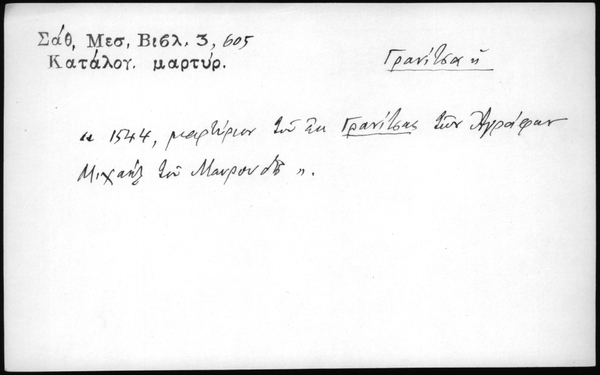 Σάθ, Μεσ, Βιβλ. 3, 605
Κατάλογ. μαρτύρ.
Γρανίτσα ἡ
« 1544, μαρτύριον τοῦ ἐκ Γρανίτσας τῶν Ἀγράφων
Μιχαὴλ τοῦ Μαυρουδῆ ».